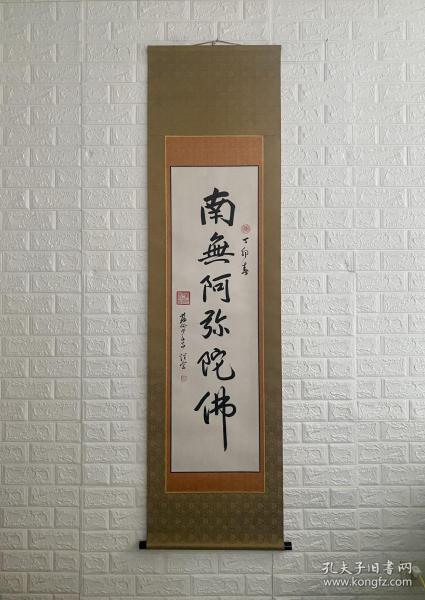 丁卯春
南無阿弥陀佛
孔夫子旧书网
www.kongfz.com